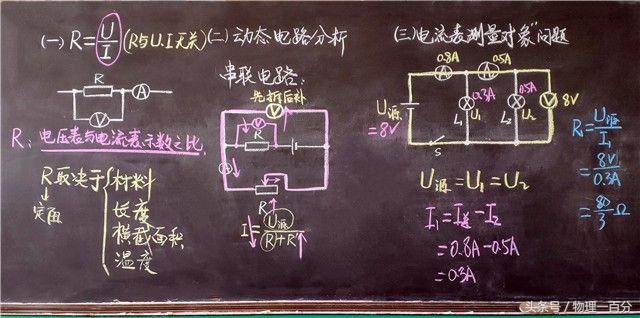 (一) R=U/I (R与U.I无关)
R
A
V
R: 电压表与电流表示数之比
R取决于{材料
↓
定值
长度
横截面积
温度
(二) 动态电路分析
串联电路:
先拆后补
V
V
R
A
R'
I=U源/(R+R')
(三)"电流表测量对象"问题
0.8A
0.5A
A
A
0.3A
0.5A
U源
=8V
L1
U1
L2
U2
V
8V
S
U源=U1=U2
I1=I总-I2
=0.8A-0.5A
=0.3A
R1=U源/I1
=8V/0.3A
=80/3Ω
头条号/物理一百分